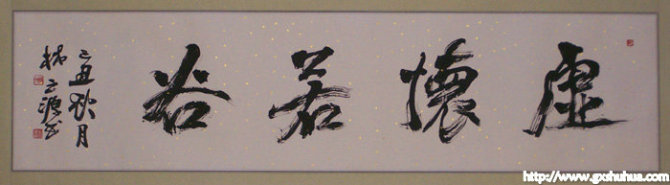 虚懷若谷
己丑秋月
林之源书
http://www.gxshuhua.com